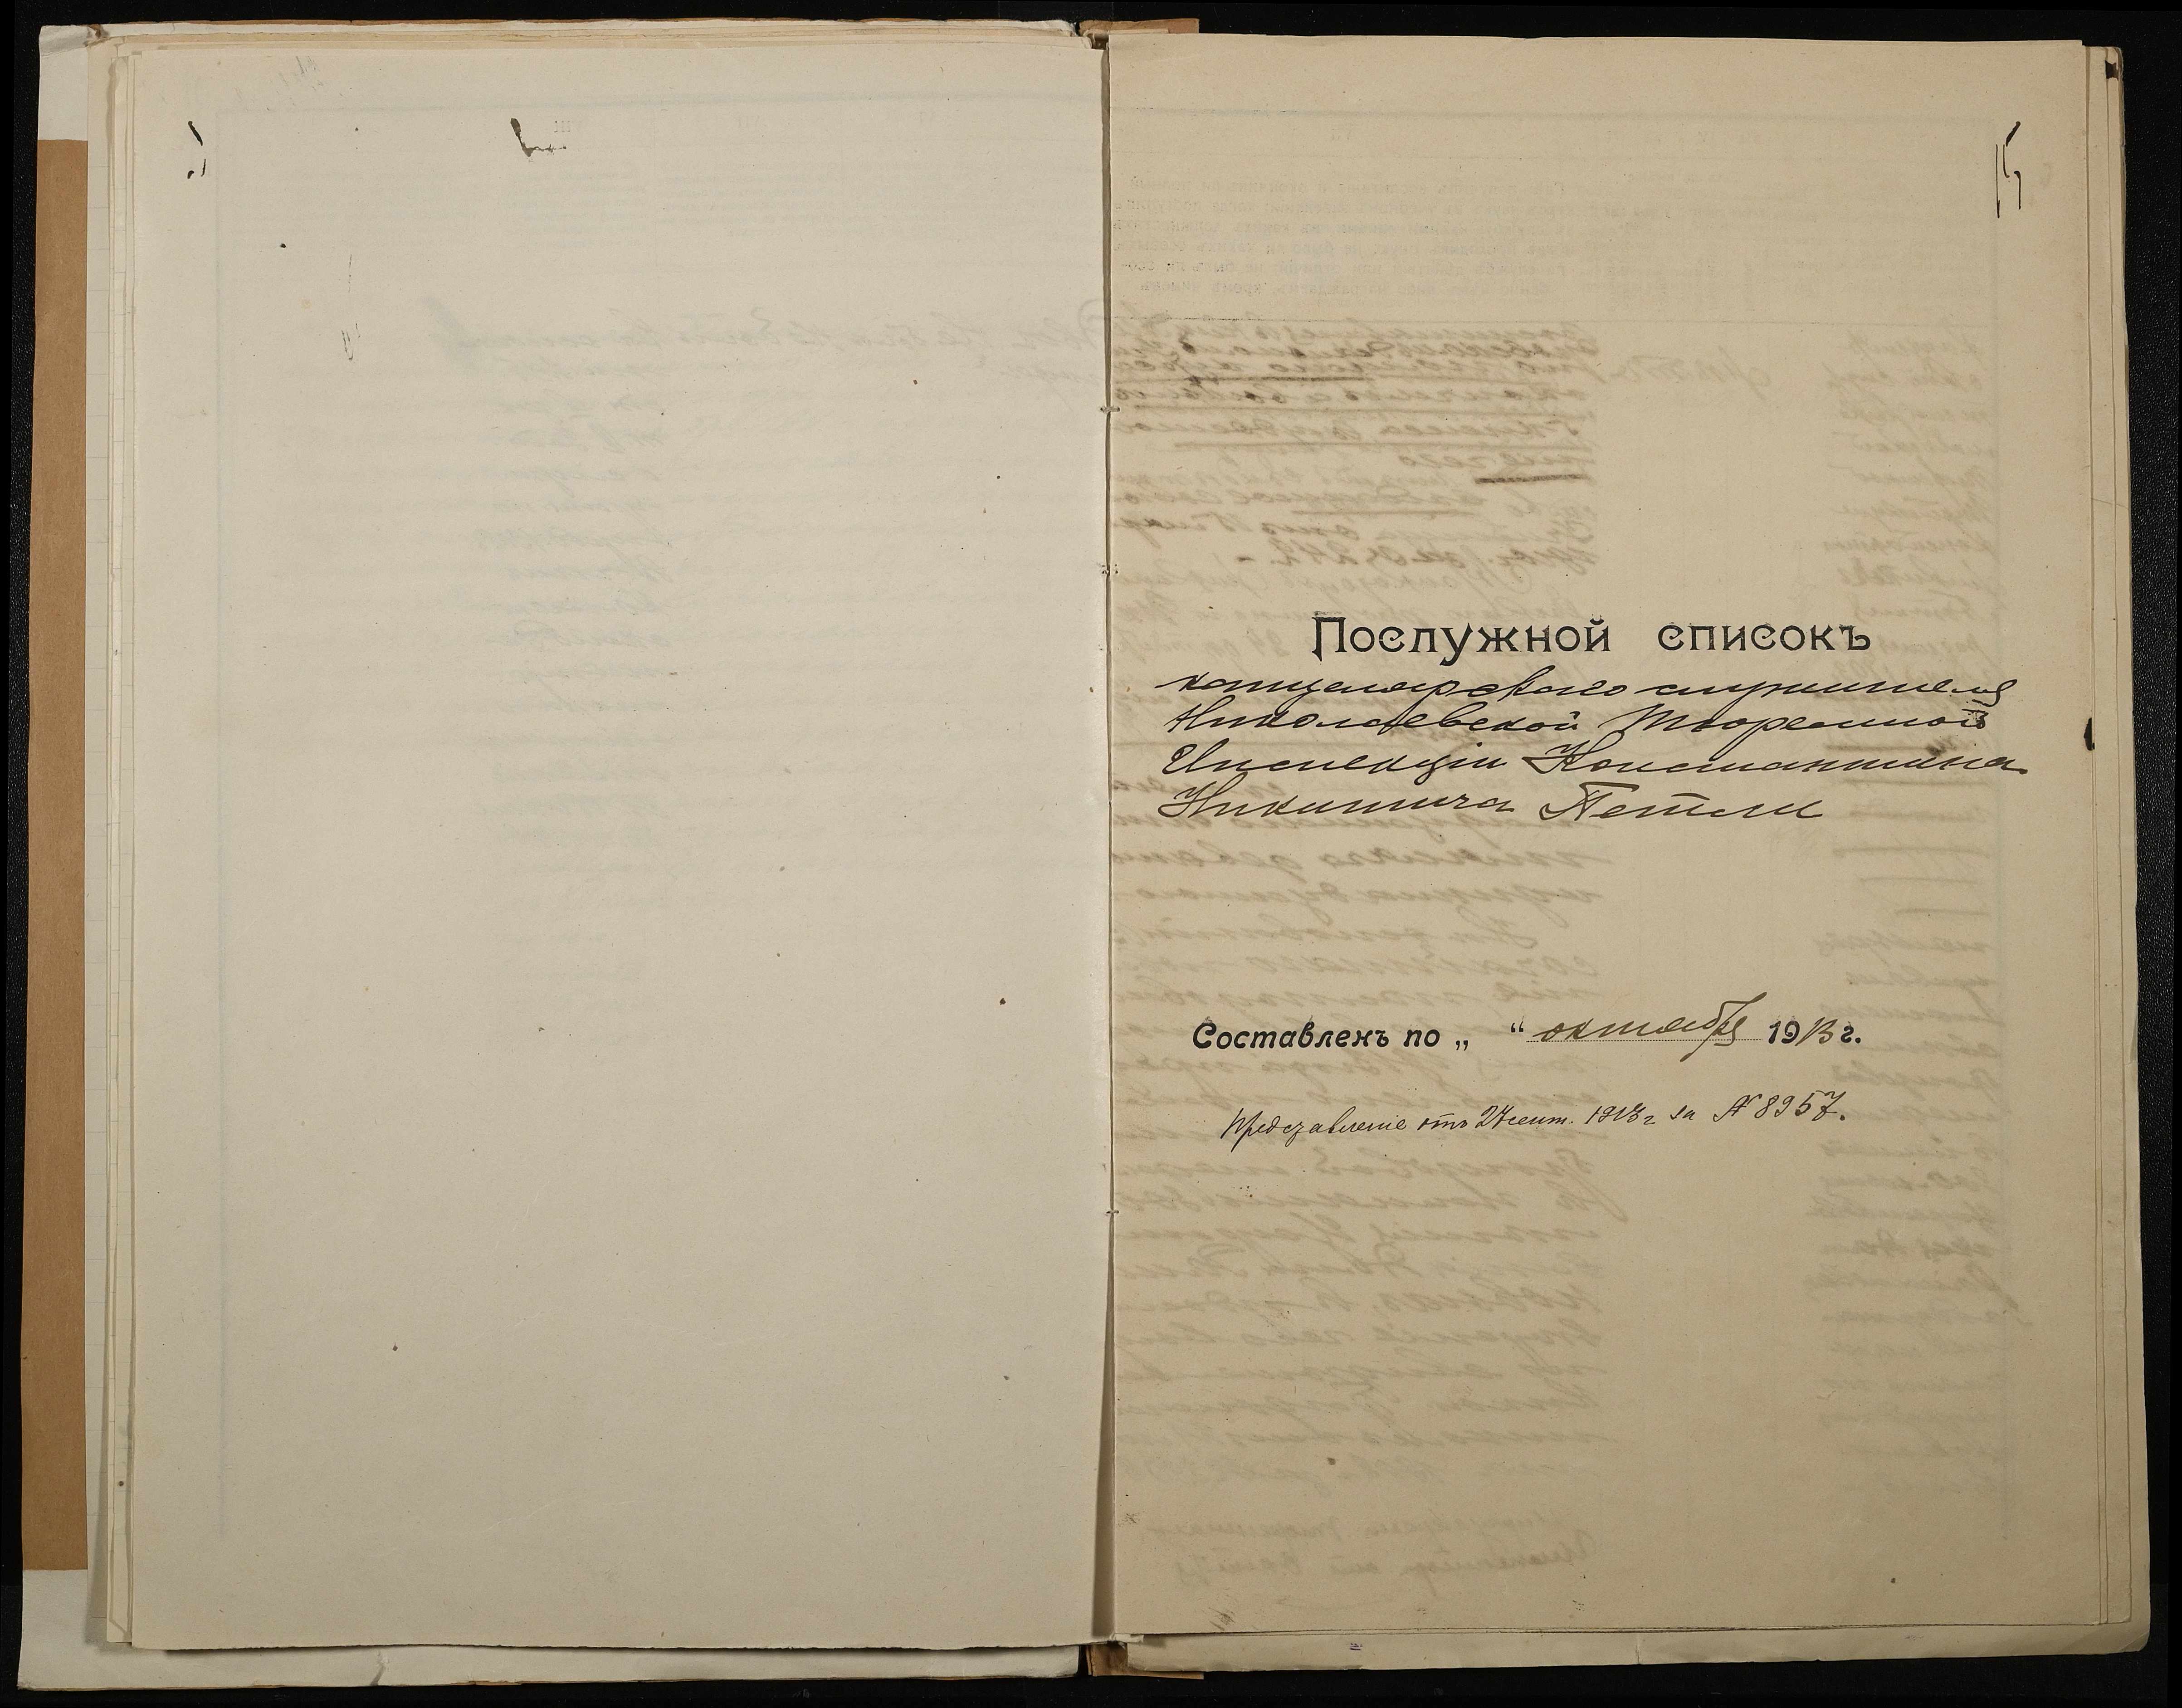 15
Послужной списокъ
канцелярскаго служителя
Николаевской Тюремной
Инспекціи Константина
Никитича Петли
Составленъ по „ “ октября 1913 г.
Представленіе отъ 27 сент. 1913 г за № 8957.